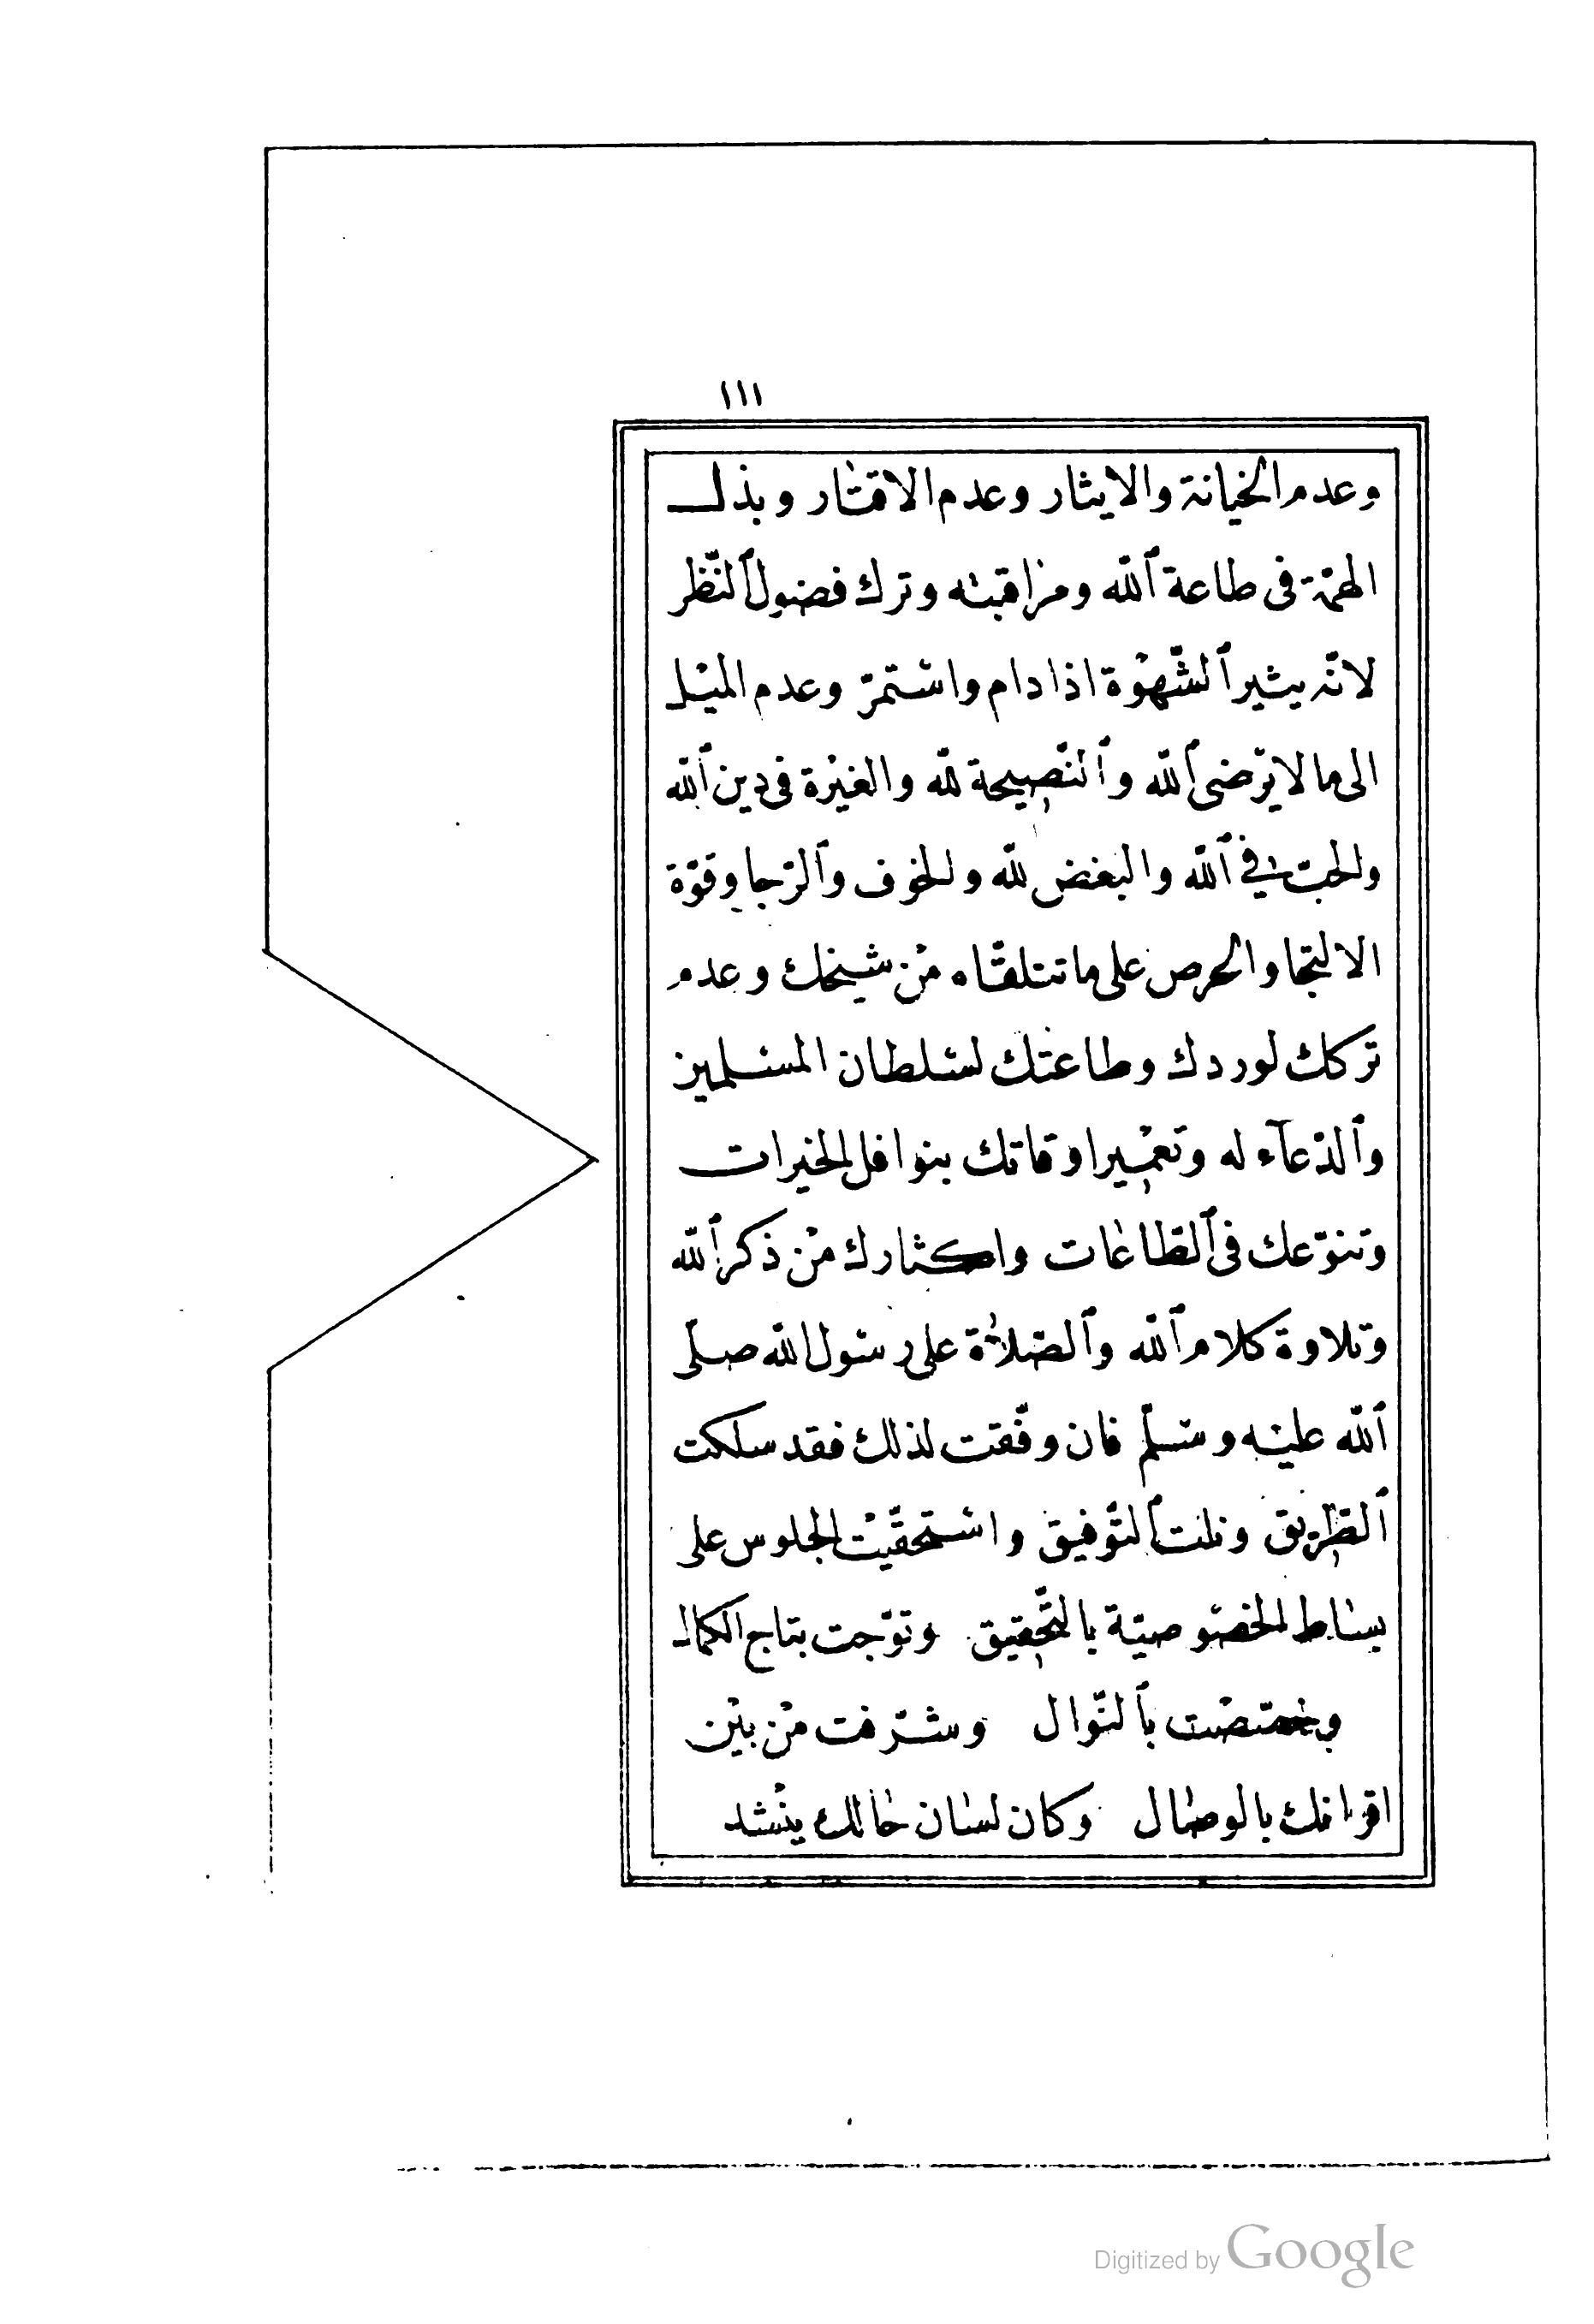 ١١١
وعدم الخيانة والايثار وعدم الاقتار وبذل
الهمّة فى طاعة ٱللّه ومراقبته وترك فضول ٱلنّظر
لانّه يثير ٱلشّهوة اذا دام واستمرّ وعدم الميل
الى ما لا يرضى ٱللّه وٱلنّصيحة للّه والغيرة فى دين ٱللّه
والحبّ فى ٱللّه والبغض للّه والخوف وٱلرّجا وقوّة
الالتجا والحرص على ما تتلقّاه من شيخك وعدم
تركك لوردك وطاعتك لسلطان المسلمين
وٱلدّعآء له وتعمير اوقاتك بنوافل الخيرات
وتنوّعك فى ٱلطّاعات واكثارك من ذكر ٱللّه
وتلاوة كلام ٱللّه وٱلصّلاة على رسول اللّه صلّى
ٱللّه عليه وسلّم فان وفّقت لذلك فقد سلكت
ٱلطّريق ونلت ٱلتّوفيق واستحقّيت الجلوس على
بساط الخصوصيّة بالتّحقيق وتوّجت بتاج الكمال
وخصّصت بٱلنّوال وشرّفت من بين
اقرانك بالوصال وكان لسان حالك ينشد
Digitized by Google